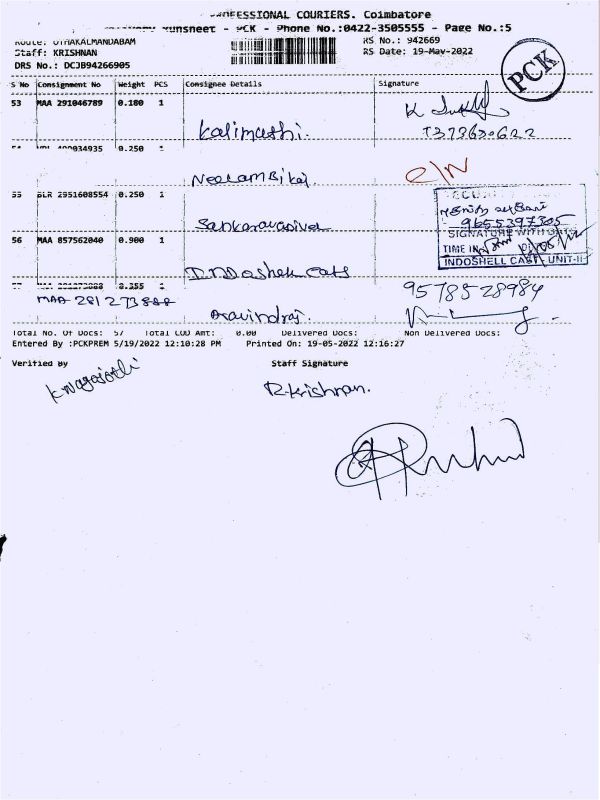 PROFESSIONAL COURIERS. Coimbatore
Runsheet - PCK - Phone No.:0422-3505555 - Page No.:5
Route: OTHAKALMANDABAM RS No.: 942669
Staff: KRISHNAN RS Date: 19-May-2022
DRS No.: DCJB94266905
PCK
S No Consignment No Weight PCS Consignee Details Signature
53 MAA 291046789 0.180 1
Kalimuthi. 7373630622
0.250 1
Neelambikai c/n
55 BLR 2951608554 0.250 1
9655397305
Sankaravasivel SIGNATURE WITH DATE
56 MAA 857562040 0.900 1 TIME IN
INDOSHELL CAST UNIT-II
Indoshell Cats
0.355 1 9578528984
MAA 281273888
Aravindraj.
Total No. Of Docs: 57 Total COD Amt: 0.00 Delivered Docs: Non Delivered Docs:
Entered By :PCKPREM 5/19/2022 12:10:28 PM Printed On: 19-05-2022 12:16:27
Verified By Staff Signature
K Nagajothi R.krishnan.